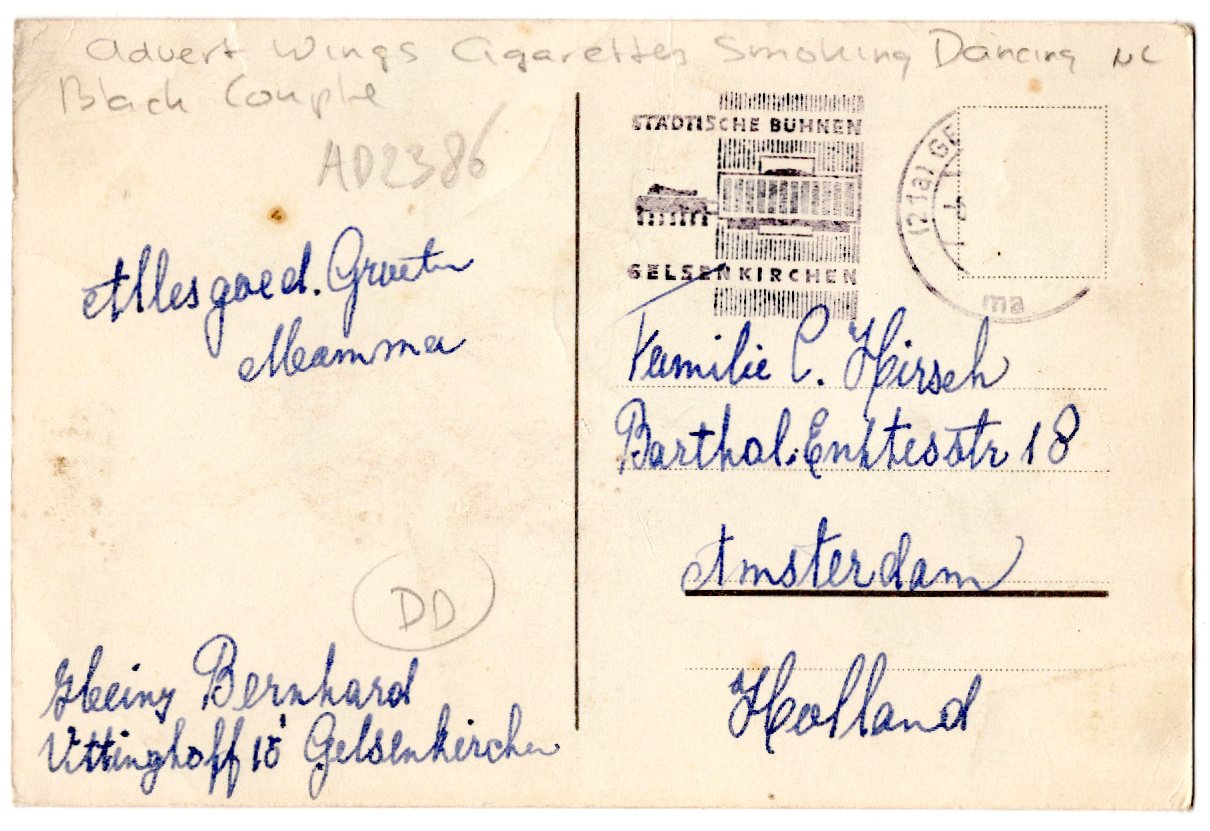 Advert Wings Cigarettes Smoking Dancing NC
Black Couple
AD2386
STÄDTISCHE BÜHNEN
GELSENKIRCHEN
(21a) GE
ma
Alles goed. Groeten
Mamma
Familie C. Hirsch
Barthol.
18
Amsterdam
Holland
DD
Heinz Bernhard
Vittinghoff 15 Gelsenkirchen